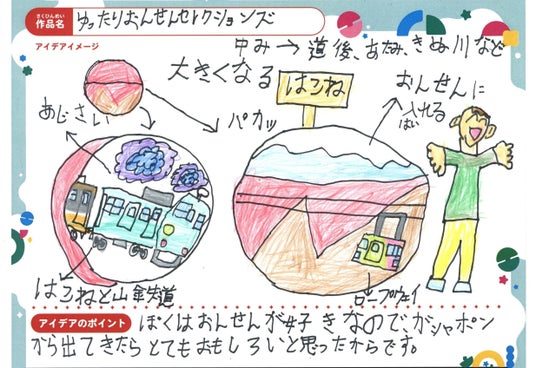 さくひんめい
作品名
ゆったりおんせんセレクションズ
アイデアイメージ
中み→道後、あたみ、きぬ川など
大きくなる
はこね
おんせんに
入れる
はい
あじさい
パカッ
はこねと山鉄道
ロープウェイ
アイデアのポイント
ぼくはおんせんが好きなので、ガシャポン
から出てきたらとてもおもしろいと思ったからです。